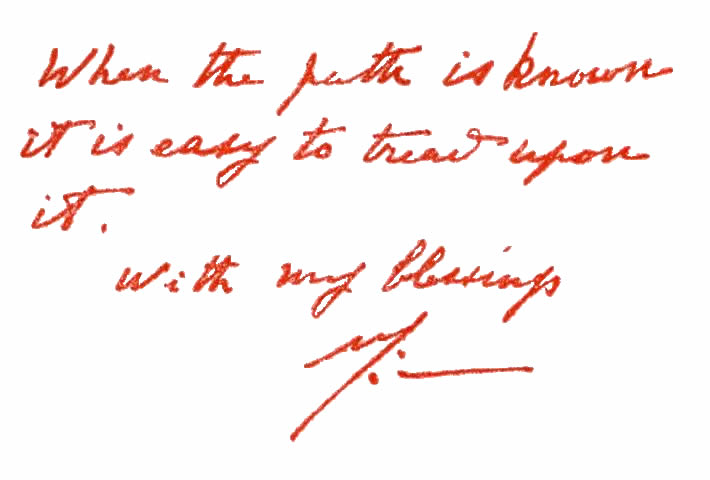 When the path is known
it is easy to tread upon
it.
with my blessings